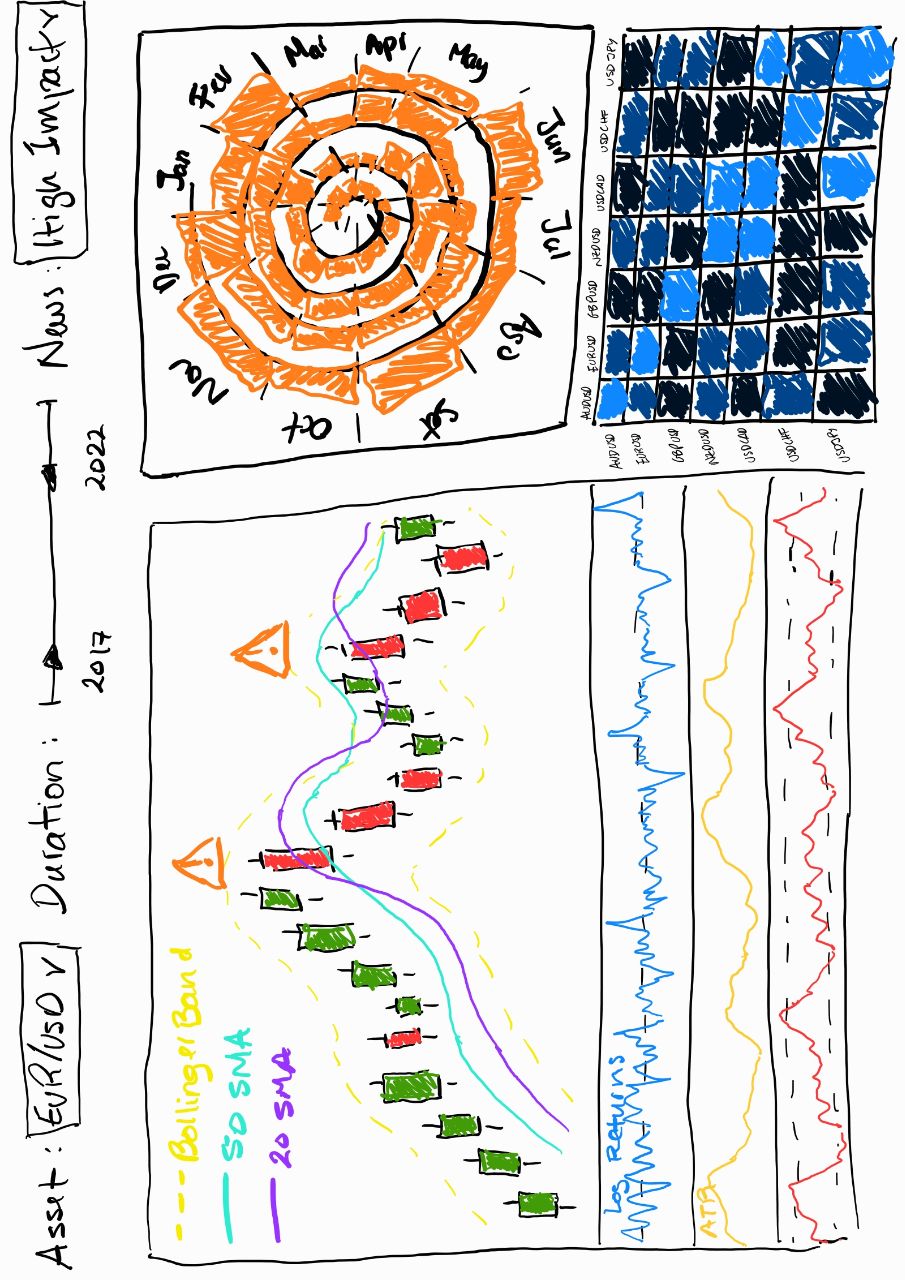 Asset : EUR/USD v Duration : 2017 2022 News : High Impact v
-- Bollinger Band
50 SMA
20 SMA
Log Returns
ATR
Jan
Feb
Mar
Apr
May
Jun
Jul
Sep
Oct
Nov
Dec
AUDUSD EURUSD GBPUSD NZDUSD USDCAD USDCHF USDJPY
AUDUSD
EURUSD
GBPUSD
NZDUSD
USDCAD
USDCHF
USDJPY